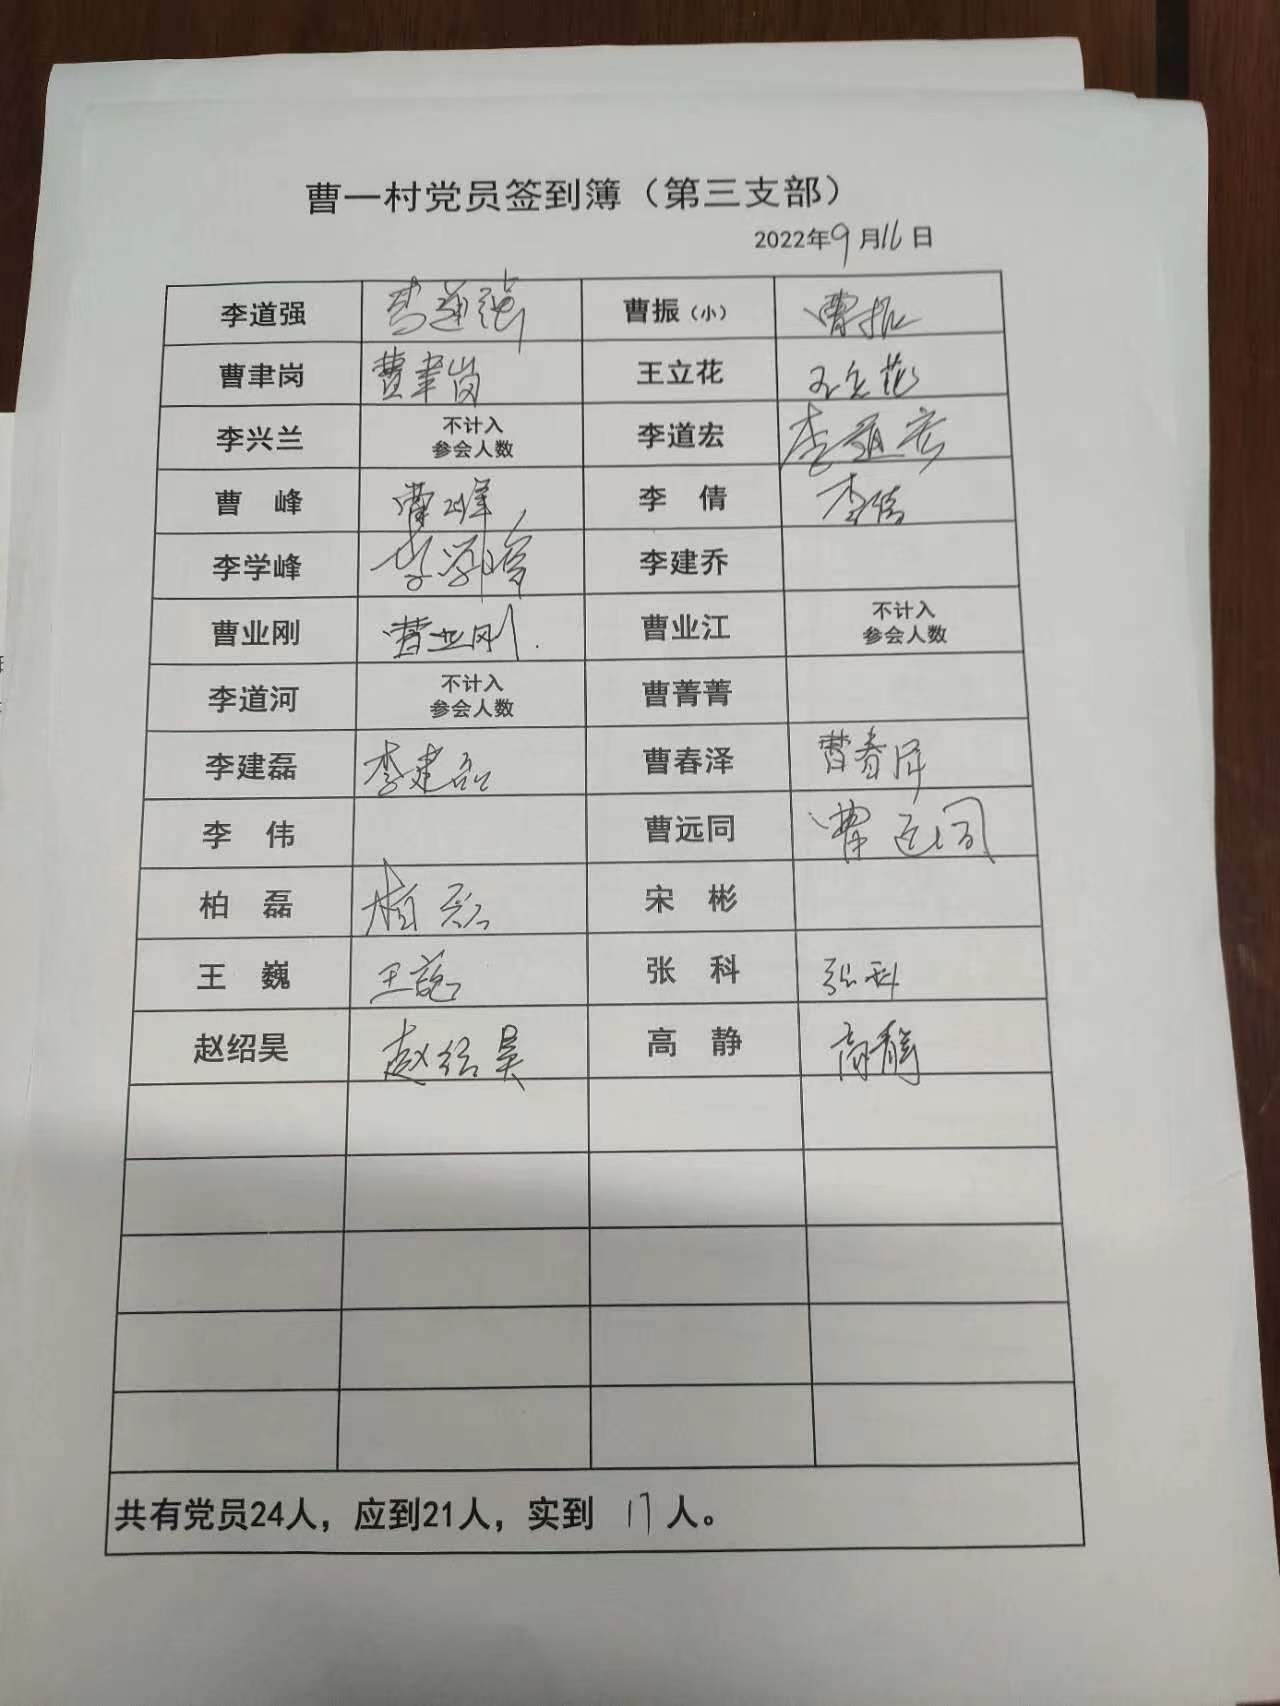 曹一村党员签到簿（第三支部）
2022年9月16日
李道强 李道强 曹振（小） 曹振
曹聿岗 曹聿岗 王立花 王立花
李兴兰 不计入 参会人数 李道宏 李道宏
曹 峰 曹峰 李 倩 李倩
李学峰 李学峰 李建乔
曹业刚 曹业刚 曹业江 不计入 参会人数
李道河 不计入 参会人数 曹菁菁
李建磊 李建磊 曹春泽 曹春泽
李 伟 曹远同 曹远同
柏 磊 柏磊 宋 彬
王 巍 王 张 科 张科
赵绍昊 赵绍昊 高 静 高静
共有党员24人，应到21人，实到 17 人。